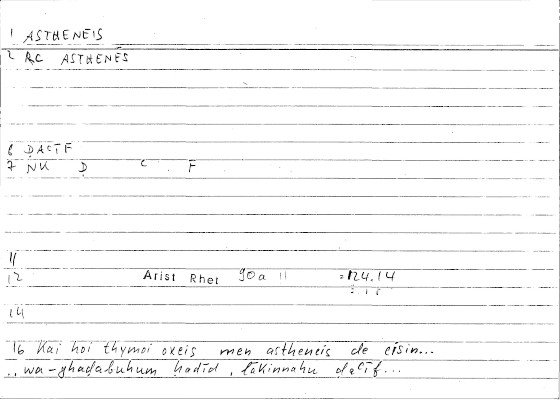 1 ASTHENEIS
2 RC ASTHENES
6 DAcTF
7 NU D c F
11
12 Arist Rhet 90a 11 =124.14
14
16 Kai hoi thymoi oxeis men astheneis de eisin...
,, wa-ghaḍabuhum ḥadīd, lākinnahu ḍaʿīf...